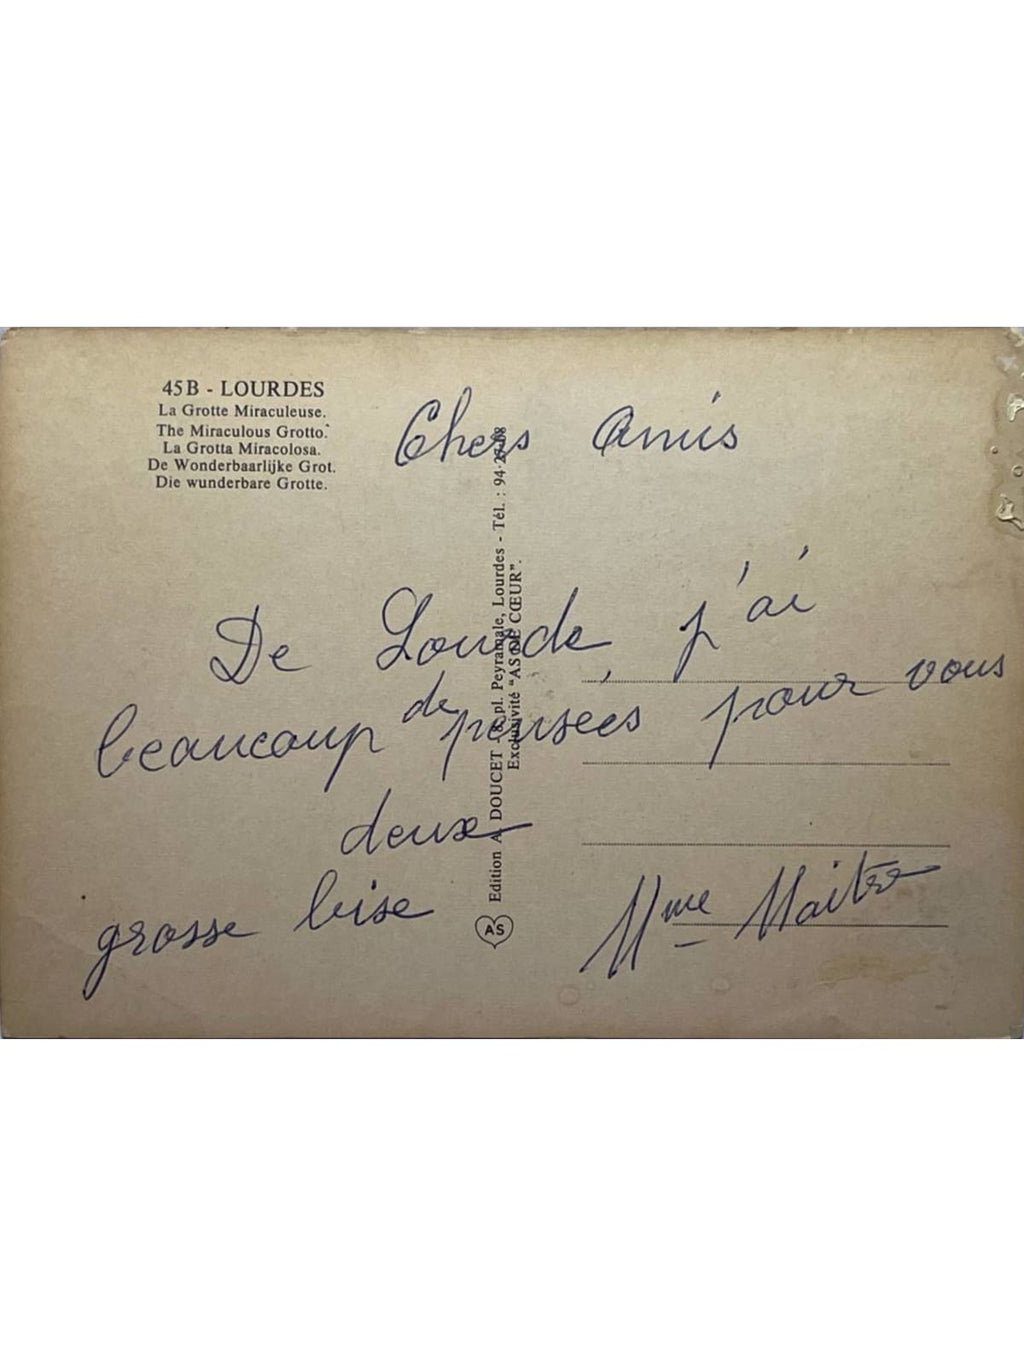 45B - LOURDES
La Grotte Miraculeuse.
The Miraculous Grotto.
La Grotta Miracolosa.
De Wonderbaarlijke Grot.
Die wunderbare Grotte.
Chers Amis
De Lourde j'ai
beaucoup de pensées pour vous
deux
grosse bise
Mme Maitre
Edition A. DOUCET - pl. Peyramale, Lourdes - Tél. : 94
Exclusivité "AS DE CŒUR".
AS